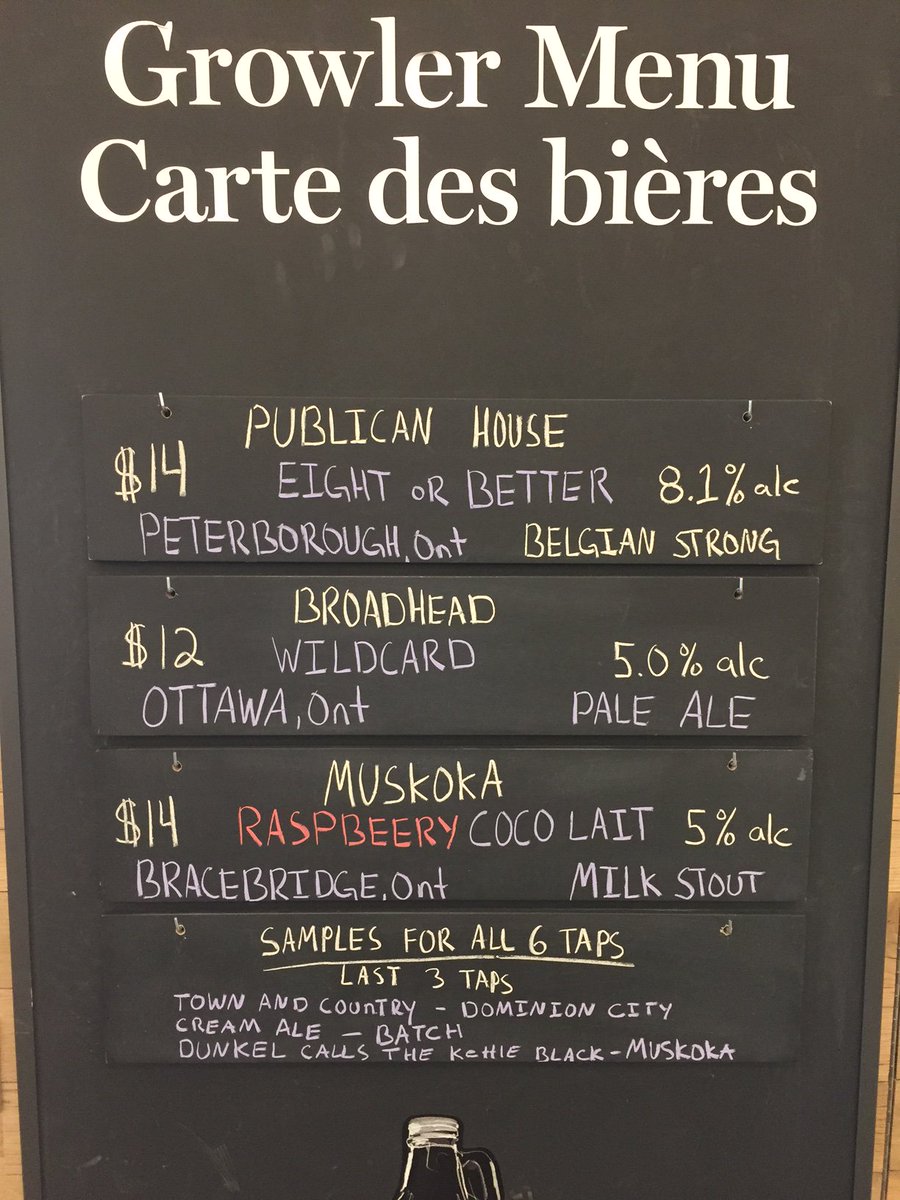 Growler Menu
Carte des bières
PUBLICAN HOUSE
$14 EIGHT OR BETTER 8.1% alc
PETERBOROUGH, Ont BELGIAN STRONG
BROADHEAD
$12 WILDCARD 5.0% alc
OTTAWA, Ont PALE ALE
MUSKOKA
$14 RASPBEERY COCO LAIT 5% alc
BRACEBRIDGE, Ont MILK STOUT
SAMPLES FOR ALL 6 TAPS
LAST 3 TAPS
TOWN AND COUNTRY - DOMINION CITY
CREAM ALE - BATCH
DUNKEL CALLS THE KettlE BLACK - MUSKOKA